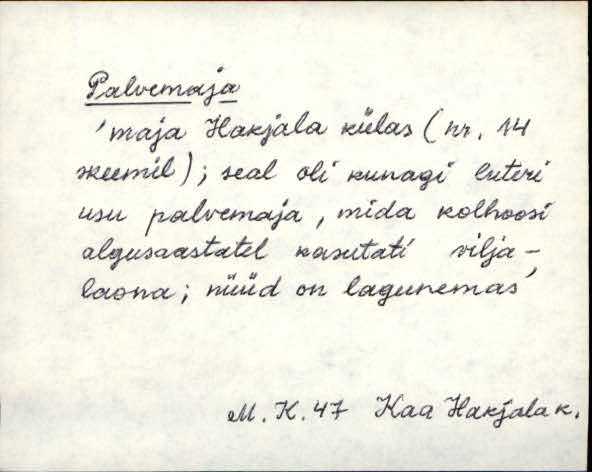 Palvemaja
'maja Hakjala külas (nr. 14
skeemil); seal oli kunagi luteri
usu palvemaja, mida kolhoosi
algusaastatel kasutati vilja-
laona; nüüd on lagunemas'
M. K. 47 Kaa Hakjala k.